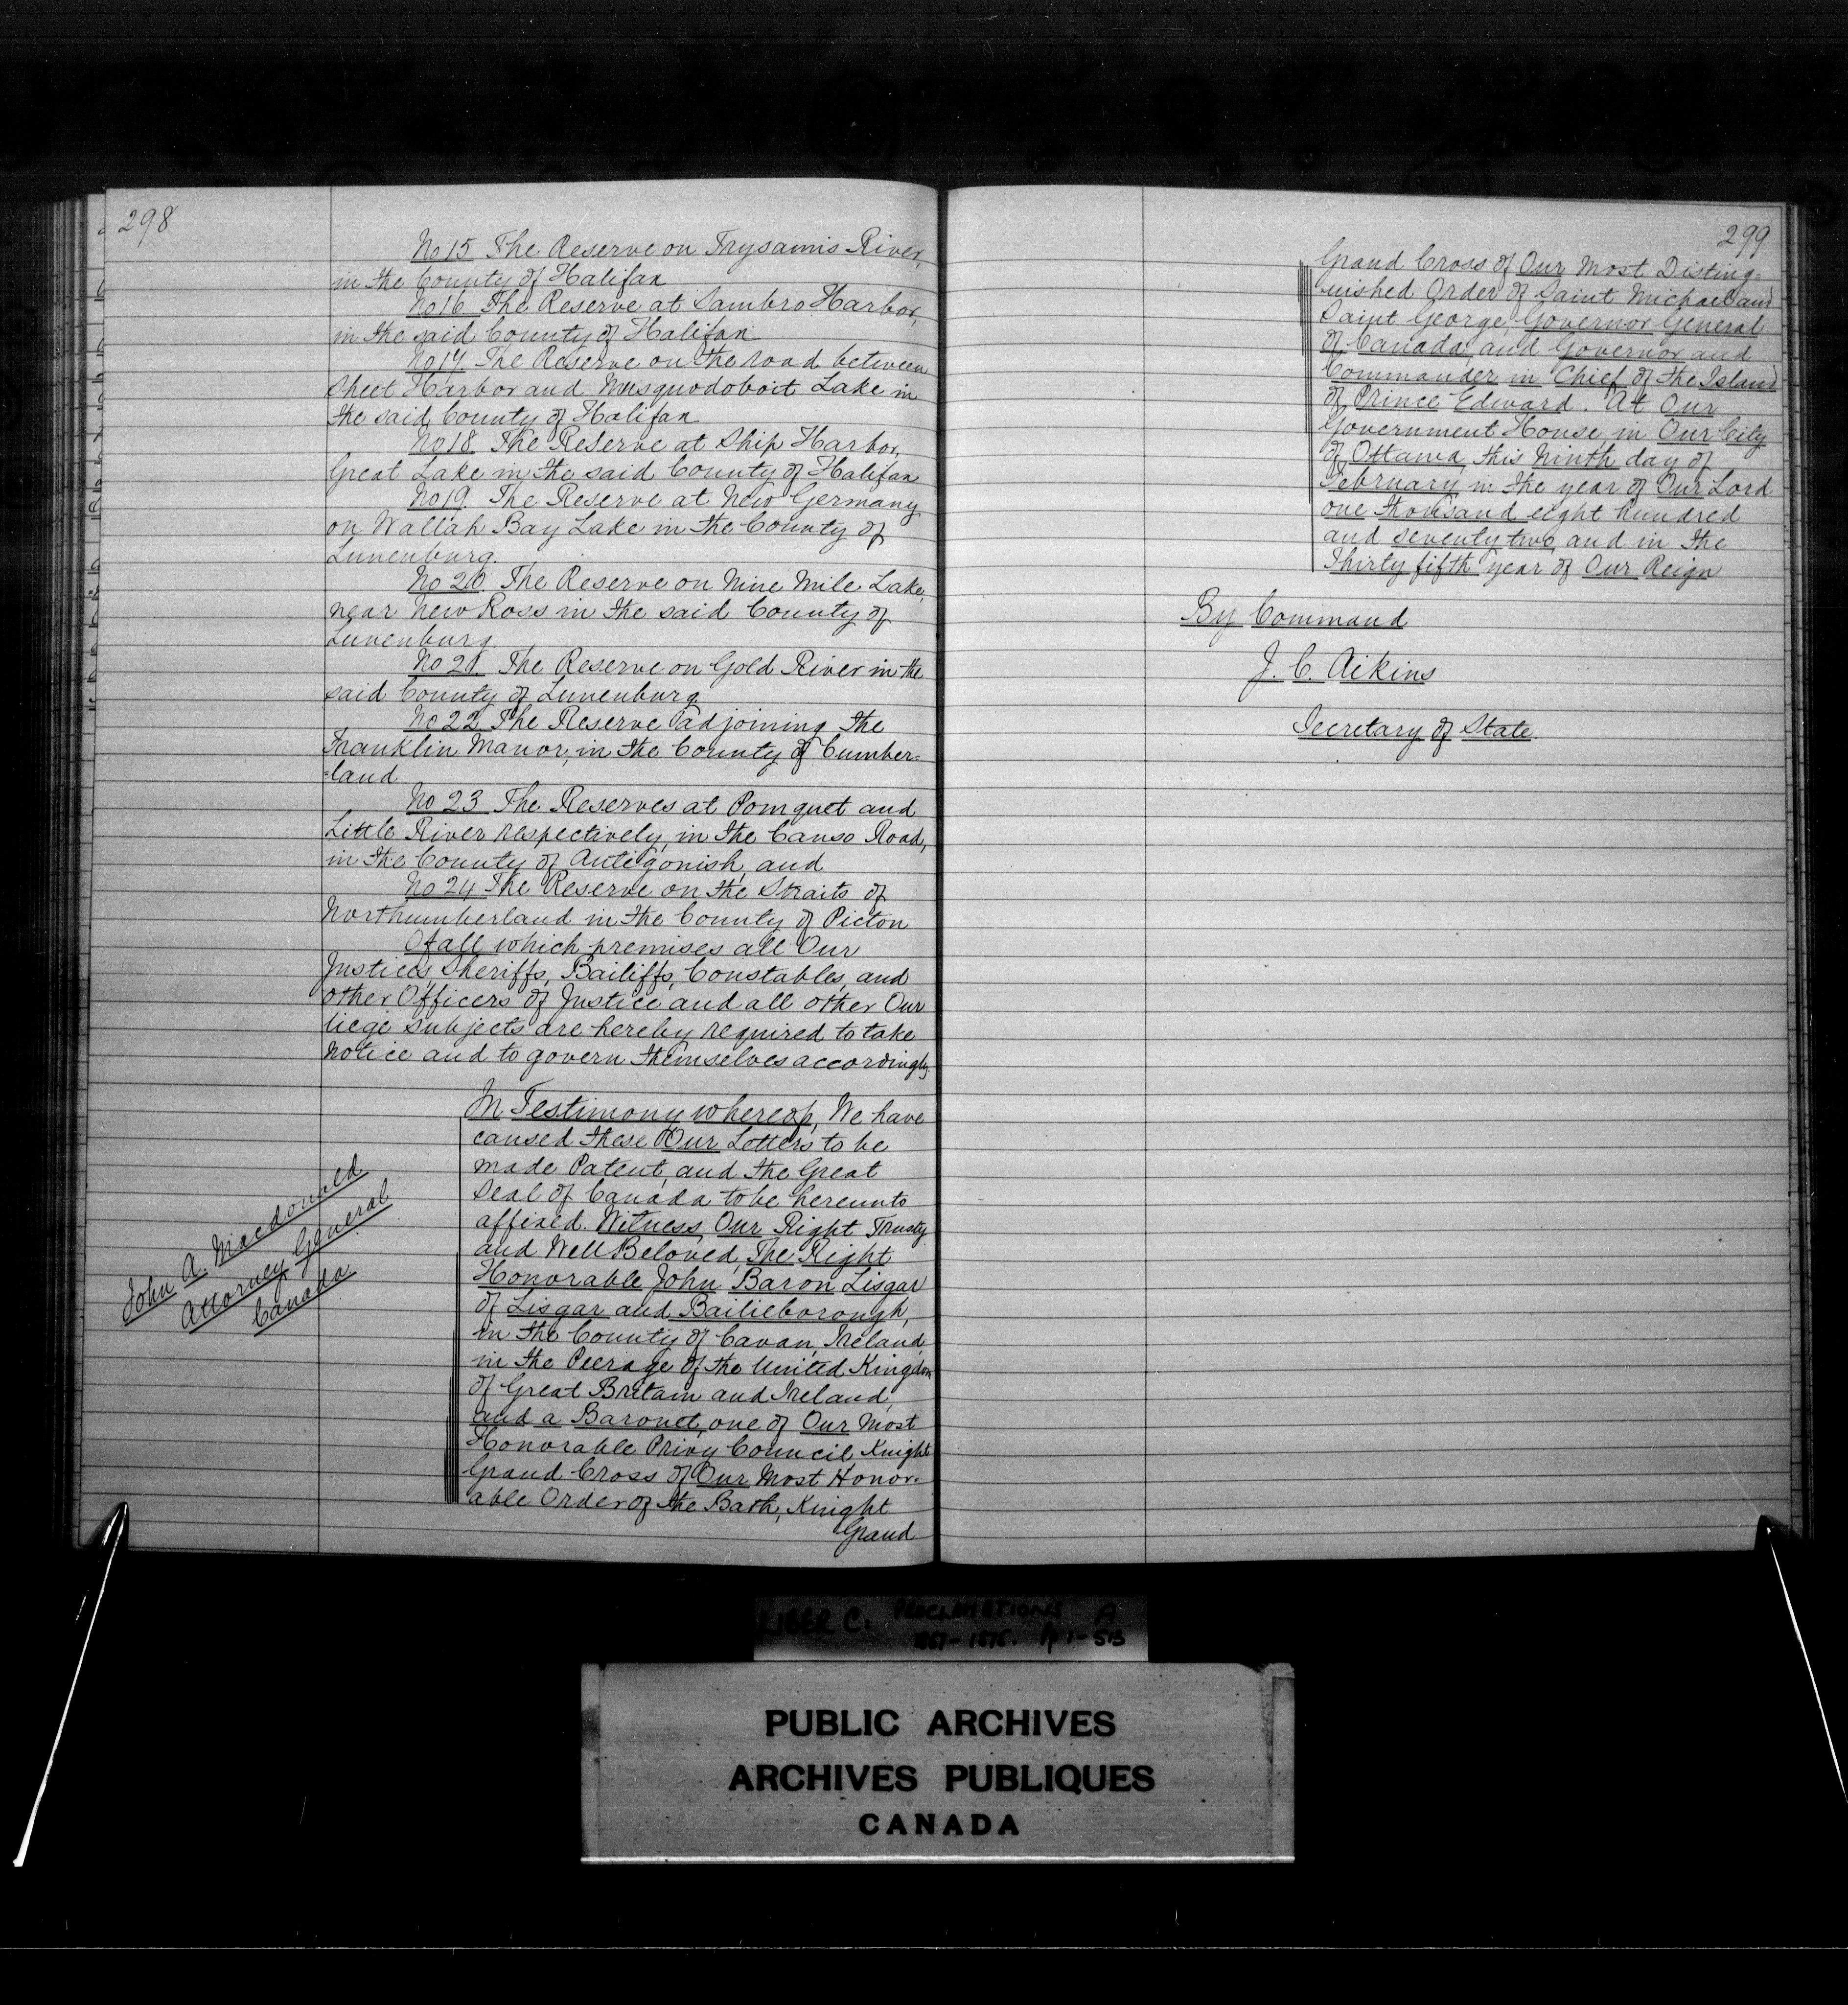 298
No 15 The Reserve on Trysamis River,
in the County of Halifax
No 16 The Reserve at Sambro Harbor,
in the said County of Halifax
No 17. The Reserve on the road between
Sheet Harbor and Musquodoboit Lake in
the said County of Halifax
No 18 The Reserve at Ship Harbor,
Great Lake in the said County of Halifax
No 19. The Reserve at New Germany
on Wallah Bay Lake in the County of
Lunenburg.
No 20 The Reserve on Nine Mile Lake,
near New Ross in the said County of
Lunenburg
No 21 The Reserve on Gold River in the
said County of Lunenburg
No 22 The Reserve adjoining the
Franklin Manor, in the County of Cumber=
=land
No 23 The Reserves at Pomquet and
Little River respectively, in the Canso Road,
in the County of Antigonish, and
No 24 The Reserve on the Straits of
Northumberland in the County of Pictou
Of all which premises all Our
Justices, Sheriffs, Bailiffs, Constables, and
other Officers of Justice and all other Our
liege subjects are hereby required to take
notice and to govern themselves accordingly.
In Testimony whereof, We have
caused these Our Letters to be
made Patent, and the Great
Seal of Canada to be hereunto
affixed. Witness, Our Right Trusty
and Well Beloved, The Right
Honorable John Baron Lisgar
of Lisgar and Bailieborough,
in the County of Cavan, Ireland,
in the Peerage of the United Kingdom
of Great Britain and Ireland,
and a Baronet, one of Our Most
Honorable Privy Council, Knight
Grand Cross of Our Most Honor-
able Order of the Bath, Knight
Grand
John A. Macdonald
Attorney General
Canada
299
Grand Cross of Our Most Disting=
uished Order of Saint Michael and
Saint George, Governor General
of Canada, and Governor and
Commander in Chief of the Island
of Prince Edward. At Our
Government House, in Our City
of Ottawa, this Ninth day of
February in the year of Our Lord
one thousand eight hundred
and seventy two, and in the
Thirty fifth year of Our Reign
By Command
J. C. Aikins
Secretary of State.
LIBER C: PROCLAMATIONS A
1867-1875. Pp 1-513
PUBLIC ARCHIVES
ARCHIVES PUBLIQUES
CANADA